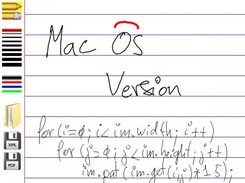 Mac Os
Version
for (i=0; i<im.width; i++)
for (j=0; j<im.height; j++)
im.put (im.get(i,j)*1.5);
XML
PDF